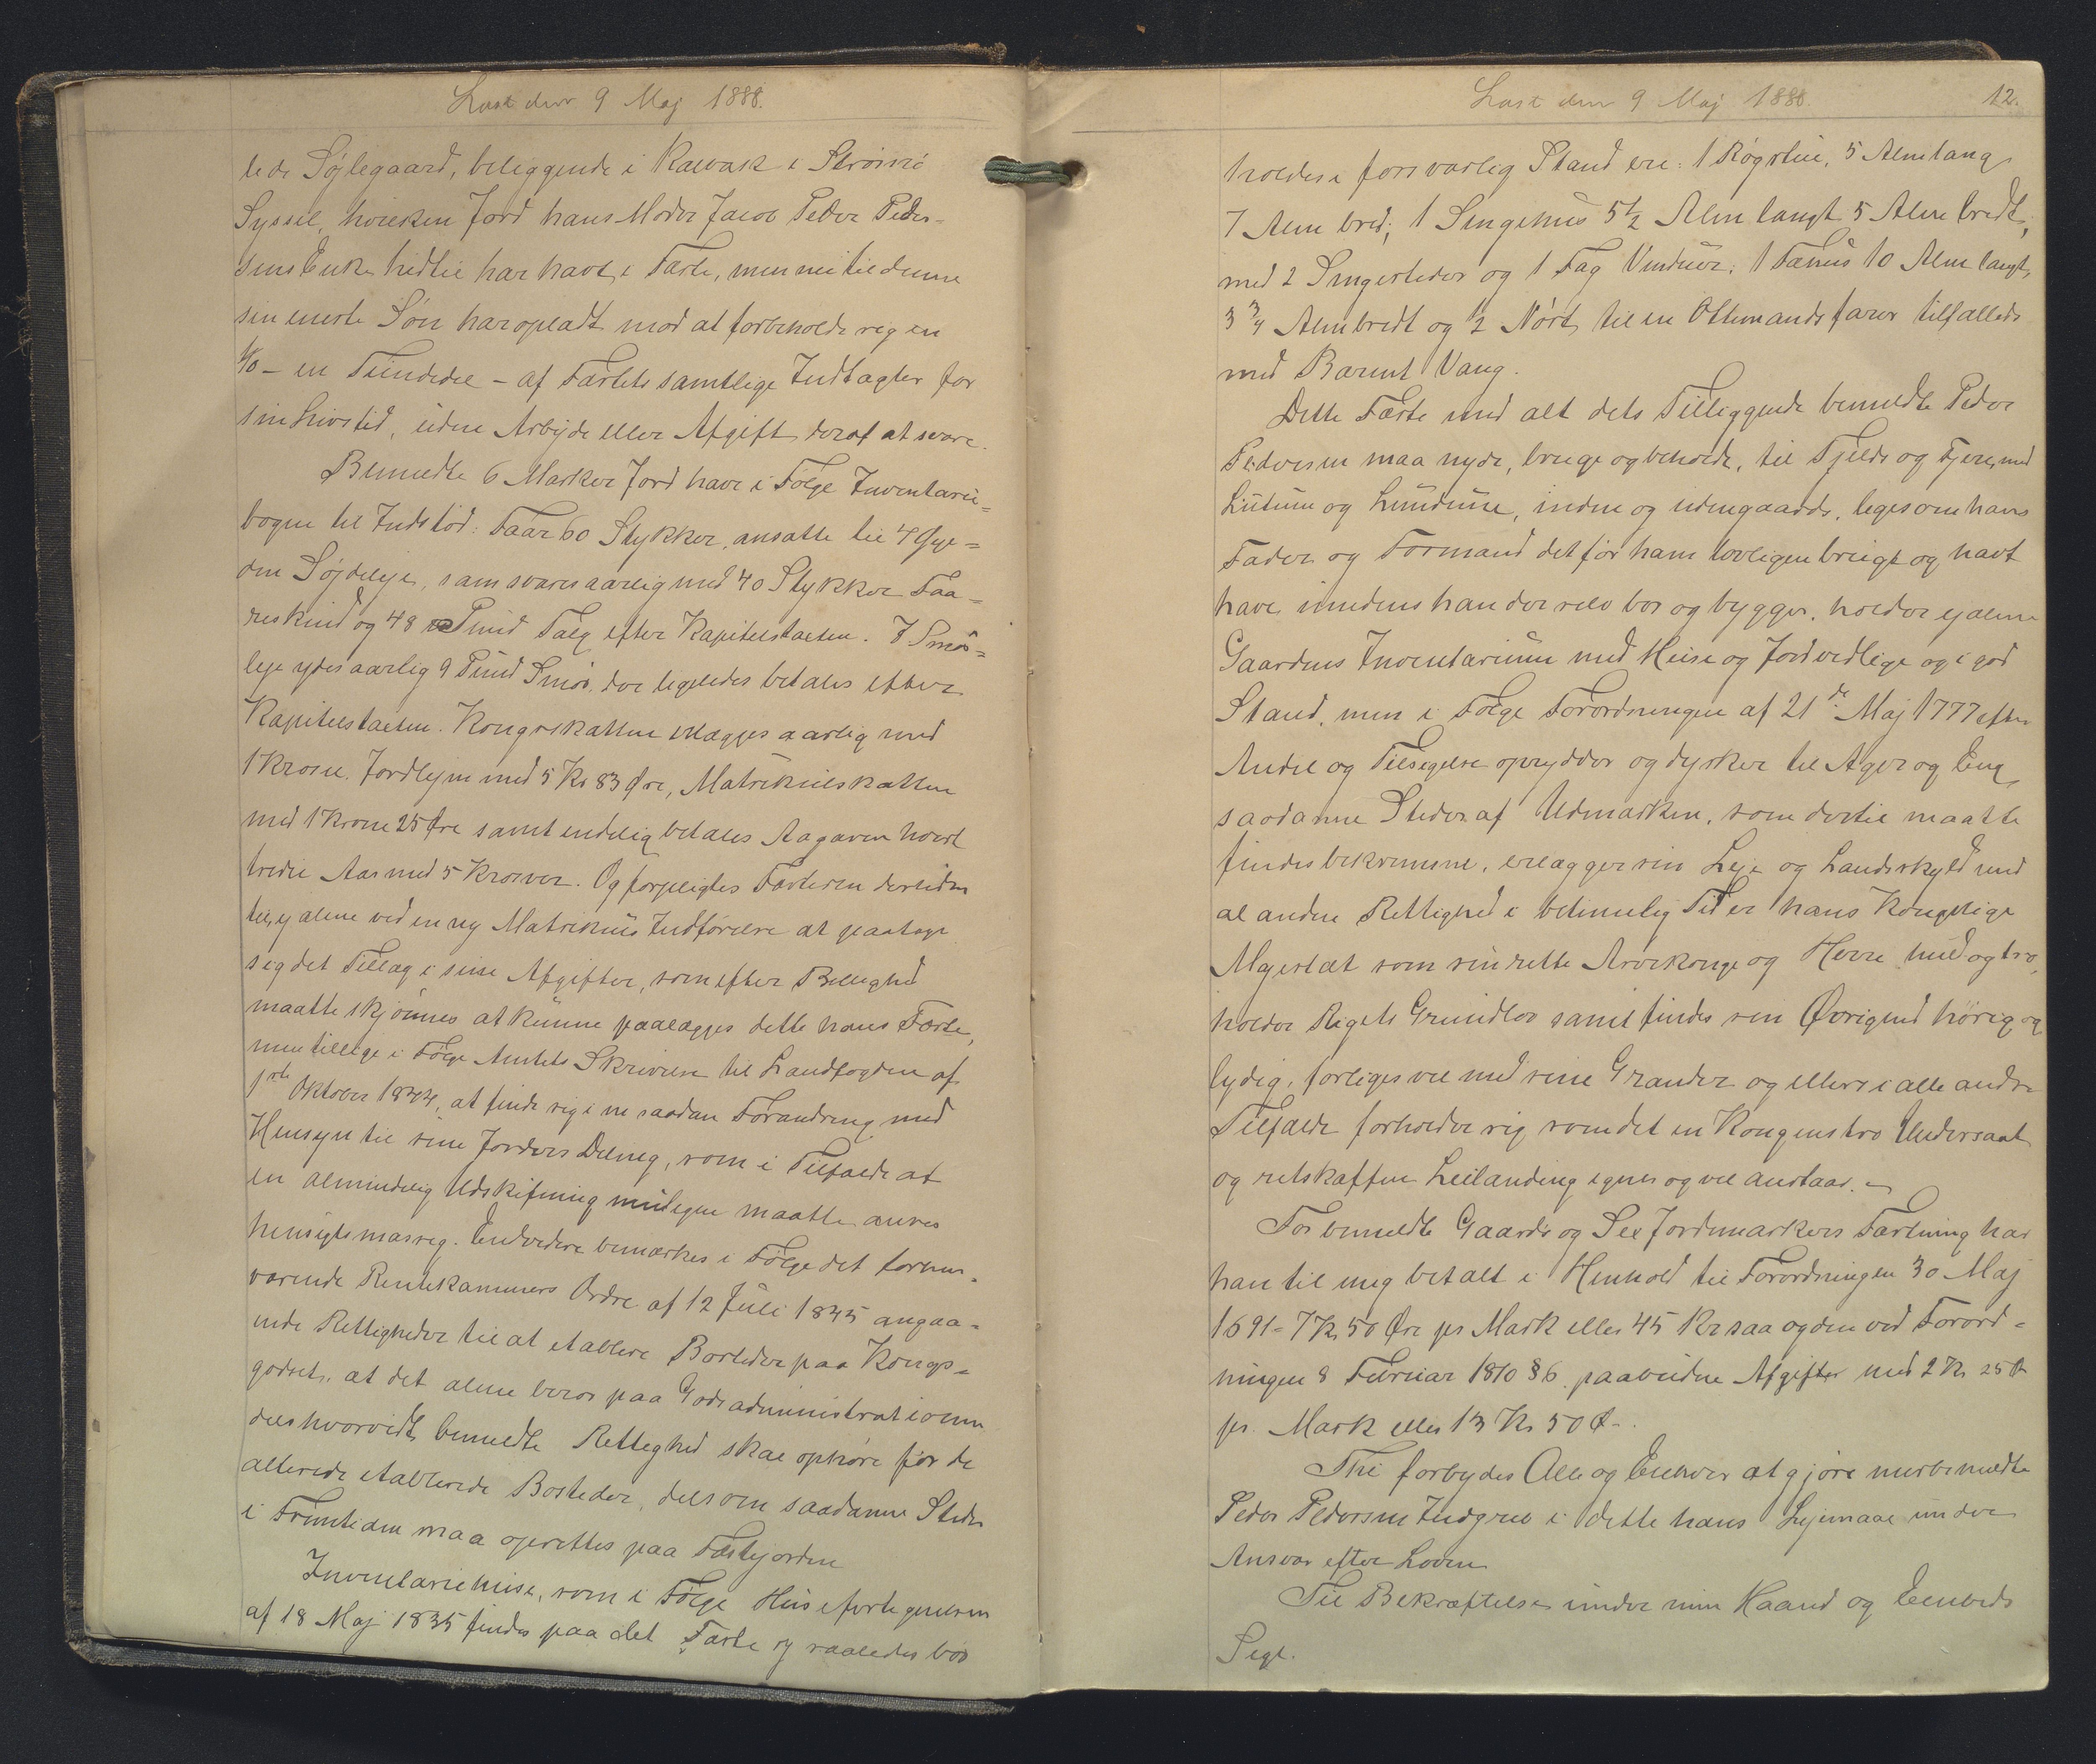 Læst den 9 Maj 1888.
lede Søjlegaard, beliggende i Kalvak i Strømø
Syssel, hvilken Jord hans Moder Jacob Peder Peder=
sens Enke hidtil har havt i Fæste, men nu til denne
sin eneste Søn har opladt mod at forbeholde sig en
1/10 - en Tiendedel - af Fæstets samtlige Indtægter for
sin Livstid, uden Arbejde eller Afgift deraf at svare.
Bemeldte 6 Marker Jord have i Følge Inventarie=
bogen til Indstød: Faar 60 Stykker, ansatte til 4 Gyl=
den Søjdeleje, som svares aarlig med 40 Stykker Faa=
reskind og 48 Pund Talg efter Kapitelstaxten. I Smør=
leje ydes aarlig 9 Pund Smør, der ligeledes betales efter
Kapitelstaxten. Kongsskatten erlægges aarlig med
1 Krone, Jordlejen med 5 Kr 83 Øre, Matrikulskatten
med 1 Krone 25 Øre samt endelig betales Aagaven hvert
tredie Aar med 5 Kroner. Og forpligtes Fæsteren desuden
til, ej alene ved en ny Matrikuls Indførelse at paatage
sig det Tillæg i sine Afgifter, som efter Billighed
maatte skjønnes at kunne paalægges dette hans Fæste,
men tillige i Følge Amtets Skrivelse til Landfogden af
1ste Oktober 1844, at finde sig i en saadan Forandring med
Hensyn til sine Jorders Deling, som i Tilfælde af
en almindelig Udskiftning muligen maatte anses
hensigtsmæssig. Endvidere bemærkes i Følge det forhen=
værende Rentekammers Ordre af 12 Juli 1845 angaa=
ende Rettigheder til at etablere Bosteder paa Kongs=
godset, at det alene beror paa Godsadministrationen
dels hvorvidt bemeldte Rettighed skal ophøre for de
allerede etablerede Bosteder, dels om saadanne Steder
i Fremtiden maa oprettes paa Fæstejorden
Inventariehuse, som i Følge Husefortegnelsen
af 18 Maj 1835 findes paa det Fæste og saaledes bør
Læst den 9 Maj 1888. 12.
holdes i forsvarlig Stand ere: 1 Røgstue, 5 Alen lang
7 Alen bred; 1 Sengehus 5 1/2 Alen langt 5 Alen bredt,
med 2 Sengesteder og 1 Fag Vinduer; 1 Fæhus 10 Alen langt,
3 3/4 Alen bredt og 1/2 Nøst til en Ottemandsfarer tilfælleds
med Bærent Vang.
Dette Fæste med alt dets Tilliggende bemeldte Peder
Pedersen maa nyde, bruge og beholde, til Fjelds og Fjere, med
Lutum og Lundum, inden og udengaards, ligesom hans
Fader og Formand det før ham lovligen brugt og havt
have imedens han der selv bor og bygger, holder ej alene
Gaardens Inventarium med Huse og Jord vedlige og i god
Stand, men i Følge Forordningen af 21de Maj 1777 efter
Andel og Tilsigelse oprydder og dyrker til Ager og Eng
saadanne Steder af Udmarken, som dertil maatte
findes bekvemme, erlægger sin Leje og Landskyld med
al anden Rettighed i betimelig Tid er hans Kongelige
Majestæt som sin rette Arvekonge og Herre huld og tro,
holder Rigets Grundlov samt findes sin Øvrighed hørig og
lydig, forliges vel med sine Grander og ellers i alle andre
Tilfælde forholder sig som det en Kongens tro Undersaat
og retskaffen Leilænding egner og vel anstaar. -
For bemeldte Gaards og Sex Jordemarkers Fæstning har
han til mig betalt i Henhold til Forordningen 30 Maj
1691 - 7 Kr 50 Øre pr Mark eller 45 Kr saa og den ved Forord=
ningen 8 Februar 1810 § 6 paabudne Afgifter med 2 Kr 25 Ø
pr. Mark eller 13 Kr 50 Ø-.
Thi forbydes Alle og Enhver at gjøre nysbemeldte
Peder Pedersen Indgreb i dette hans Lejemaal under
Ansvar efter Loven
Til Bekræftelse under min Haand og Embeds
Segl.